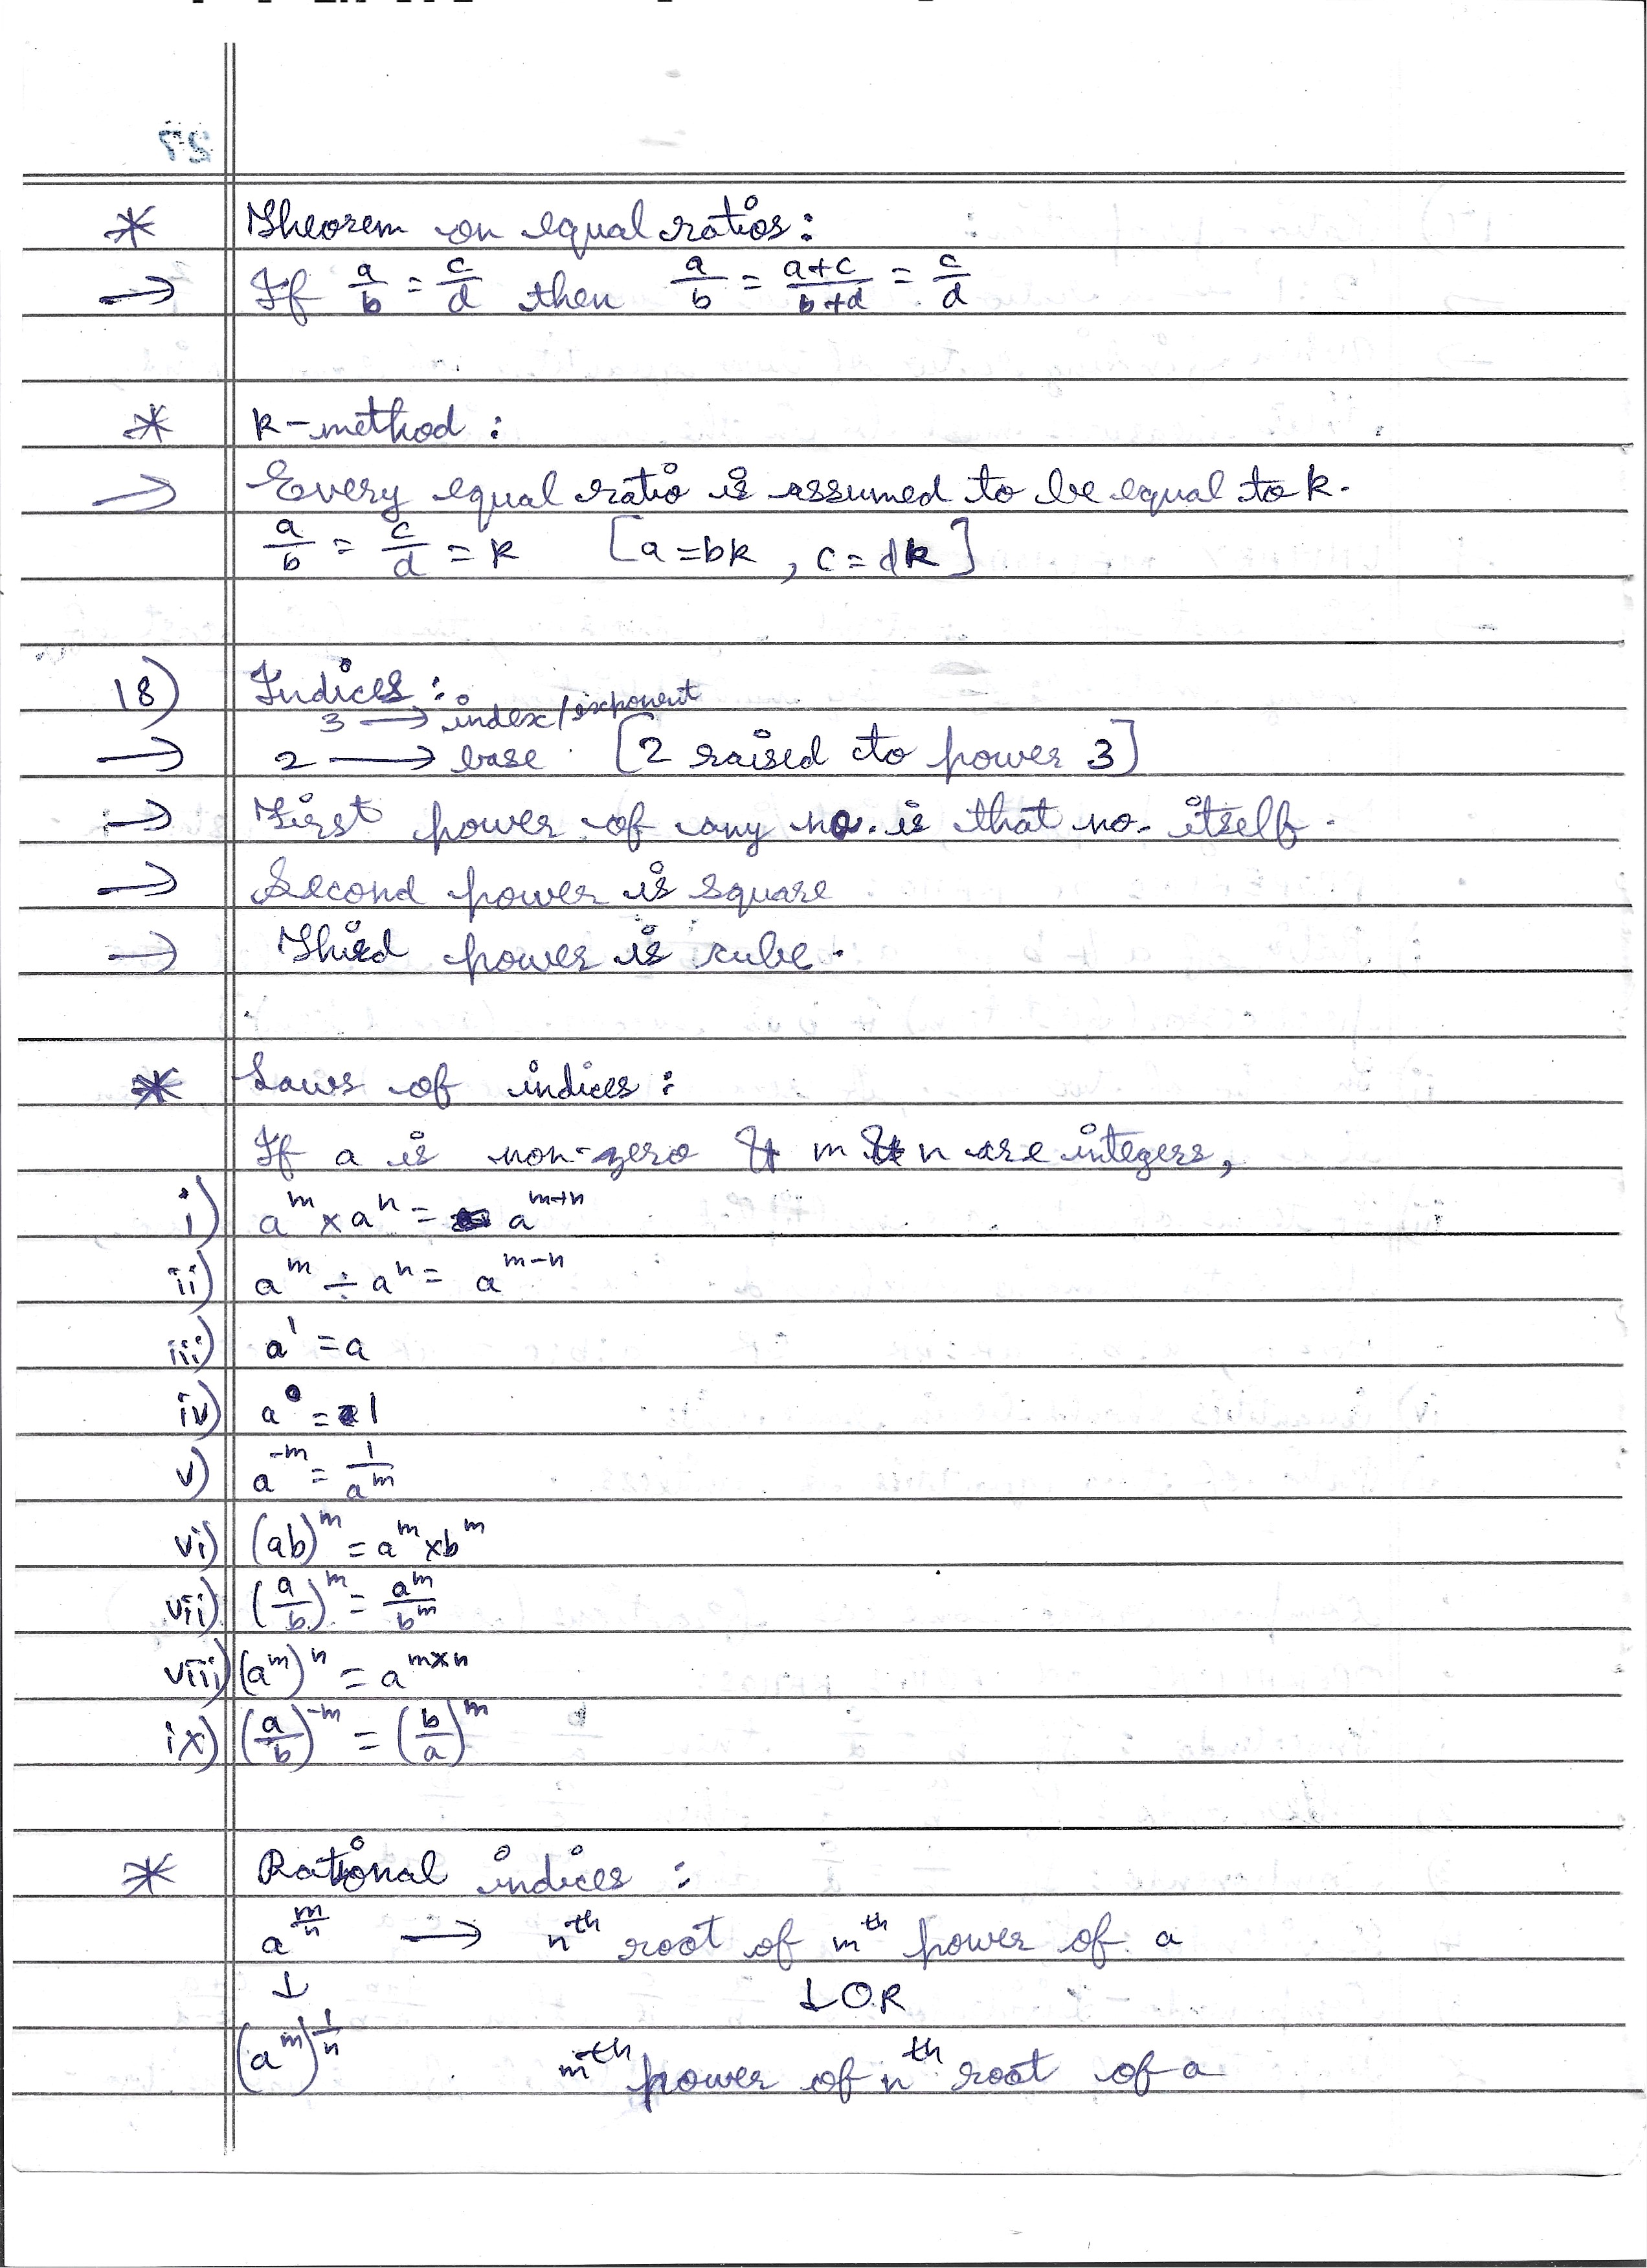 * Theorem on equal ratios:
→ If a/b = c/d then a/b = a+c/b+d = c/d
* k-method:
→ Every equal ratio is assumed to be equal to k.
a/b = c/d = k [a=bk, c=dk]
18) Indices:
3 → index/exponent
→ 2 → base [2 raised to power 3]
→ First power of any no. is that no. itself.
→ Second power is square
→ Third power is cube.
* Laws of indices:
If a is non-zero & m & n are integers,
i) a^m × a^n = a^m+n
ii) a^m ÷ a^n = a^m-n
iii) a^1 = a
iv) a^0 = 1
v) a^-m = 1/a^m
vi) (ab)^m = a^m × b^m
vii) (a/b)^m = a^m/b^m
viii) (a^m)^n = a^m×n
ix) (a/b)^-m = (b/a)^m
* Rational indices:
a^m/n → n^th root of m^th power of a
↓ ↓ OR
(a^m)^1/n m^th power of n^th root of a